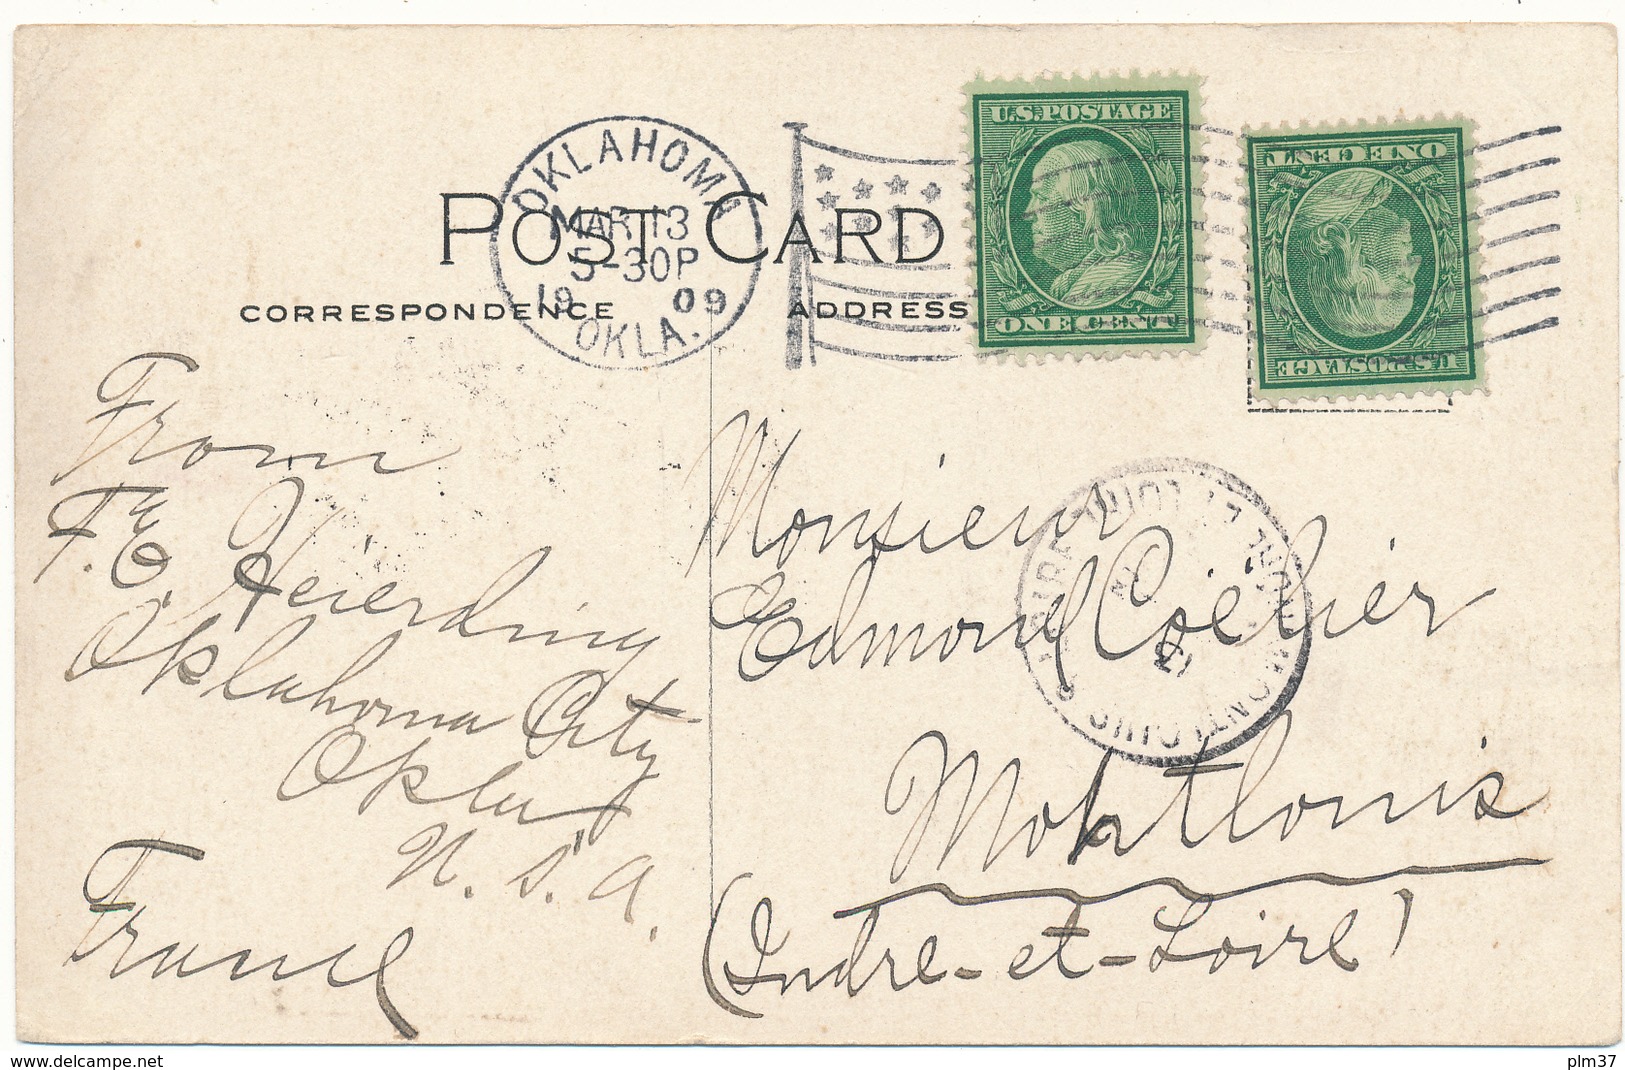 OKLAHOMA
MAR 13
5-30P
1909
OKLA.
U.S. POSTAGE
ONE CENT
ONE CENT
U.S. POSTAGE
POST CARD
CORRESPONDENCE
ADDRESS
From
F. E. Heierding
Oklahoma City
Okla
U. S. A.
France
Monsieur
Edmond
Montlouis
(Indre-et-Loire)
INDRE-ET-LOIRE
MONTLOUIS
www.delcampe.net
plm37